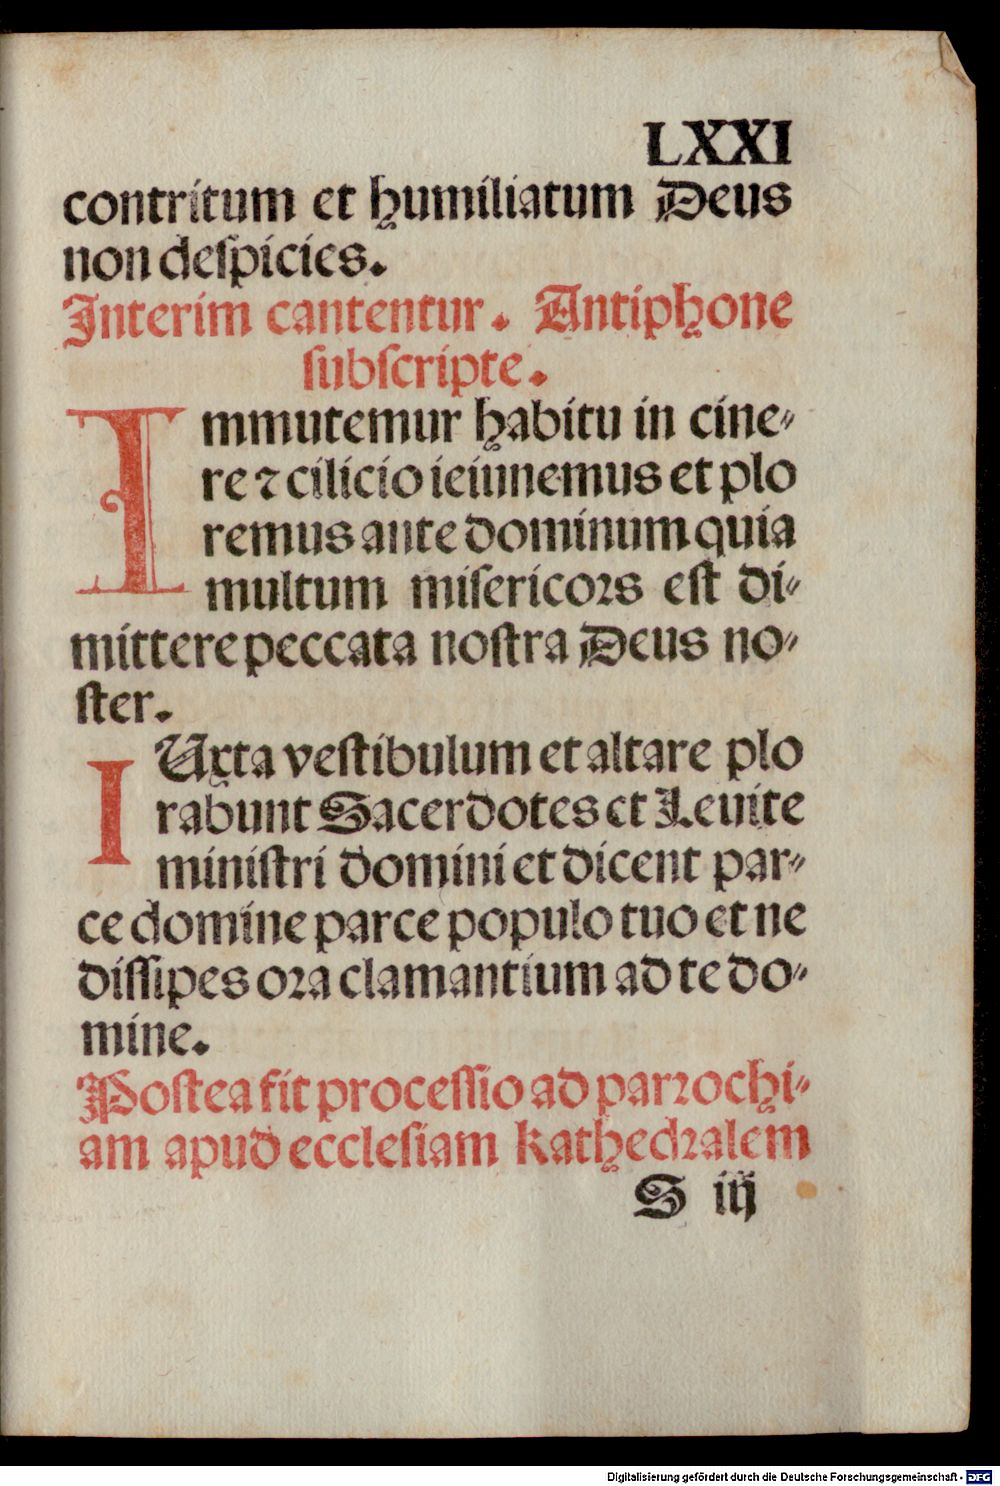 LXXI
contritum et humiliatum Deus
non deſpicies.
Interim cantentur. Antiphone
ſubſcripte.
Immutemur habitu in cine-
re ⁊ cilicio ieiunemus et plo
remus ante dominum quia
multum miſericoꝛs eſt di-
mittere peccata noſtra Deus no-
ſter.
IUxta veſtibulum et altare plo
rabunt Sacerdotes et Leuite
miniſtri domini et dicent par-
ce domine parce populo tuo et ne
diſſipes oꝛa clamantium ad te do-
mine.
Poſtea fit proceſſio ad parꝛochi-
am apud eccleſiam kathedꝛalem
S iij
Digitalisierung gefördert durch die Deutsche Forschungsgemeinschaft - DFG